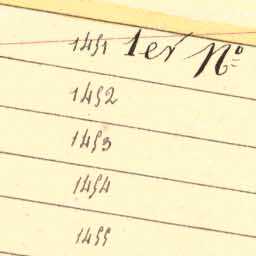 1451 1er Nº
1452
1453
1454
1455